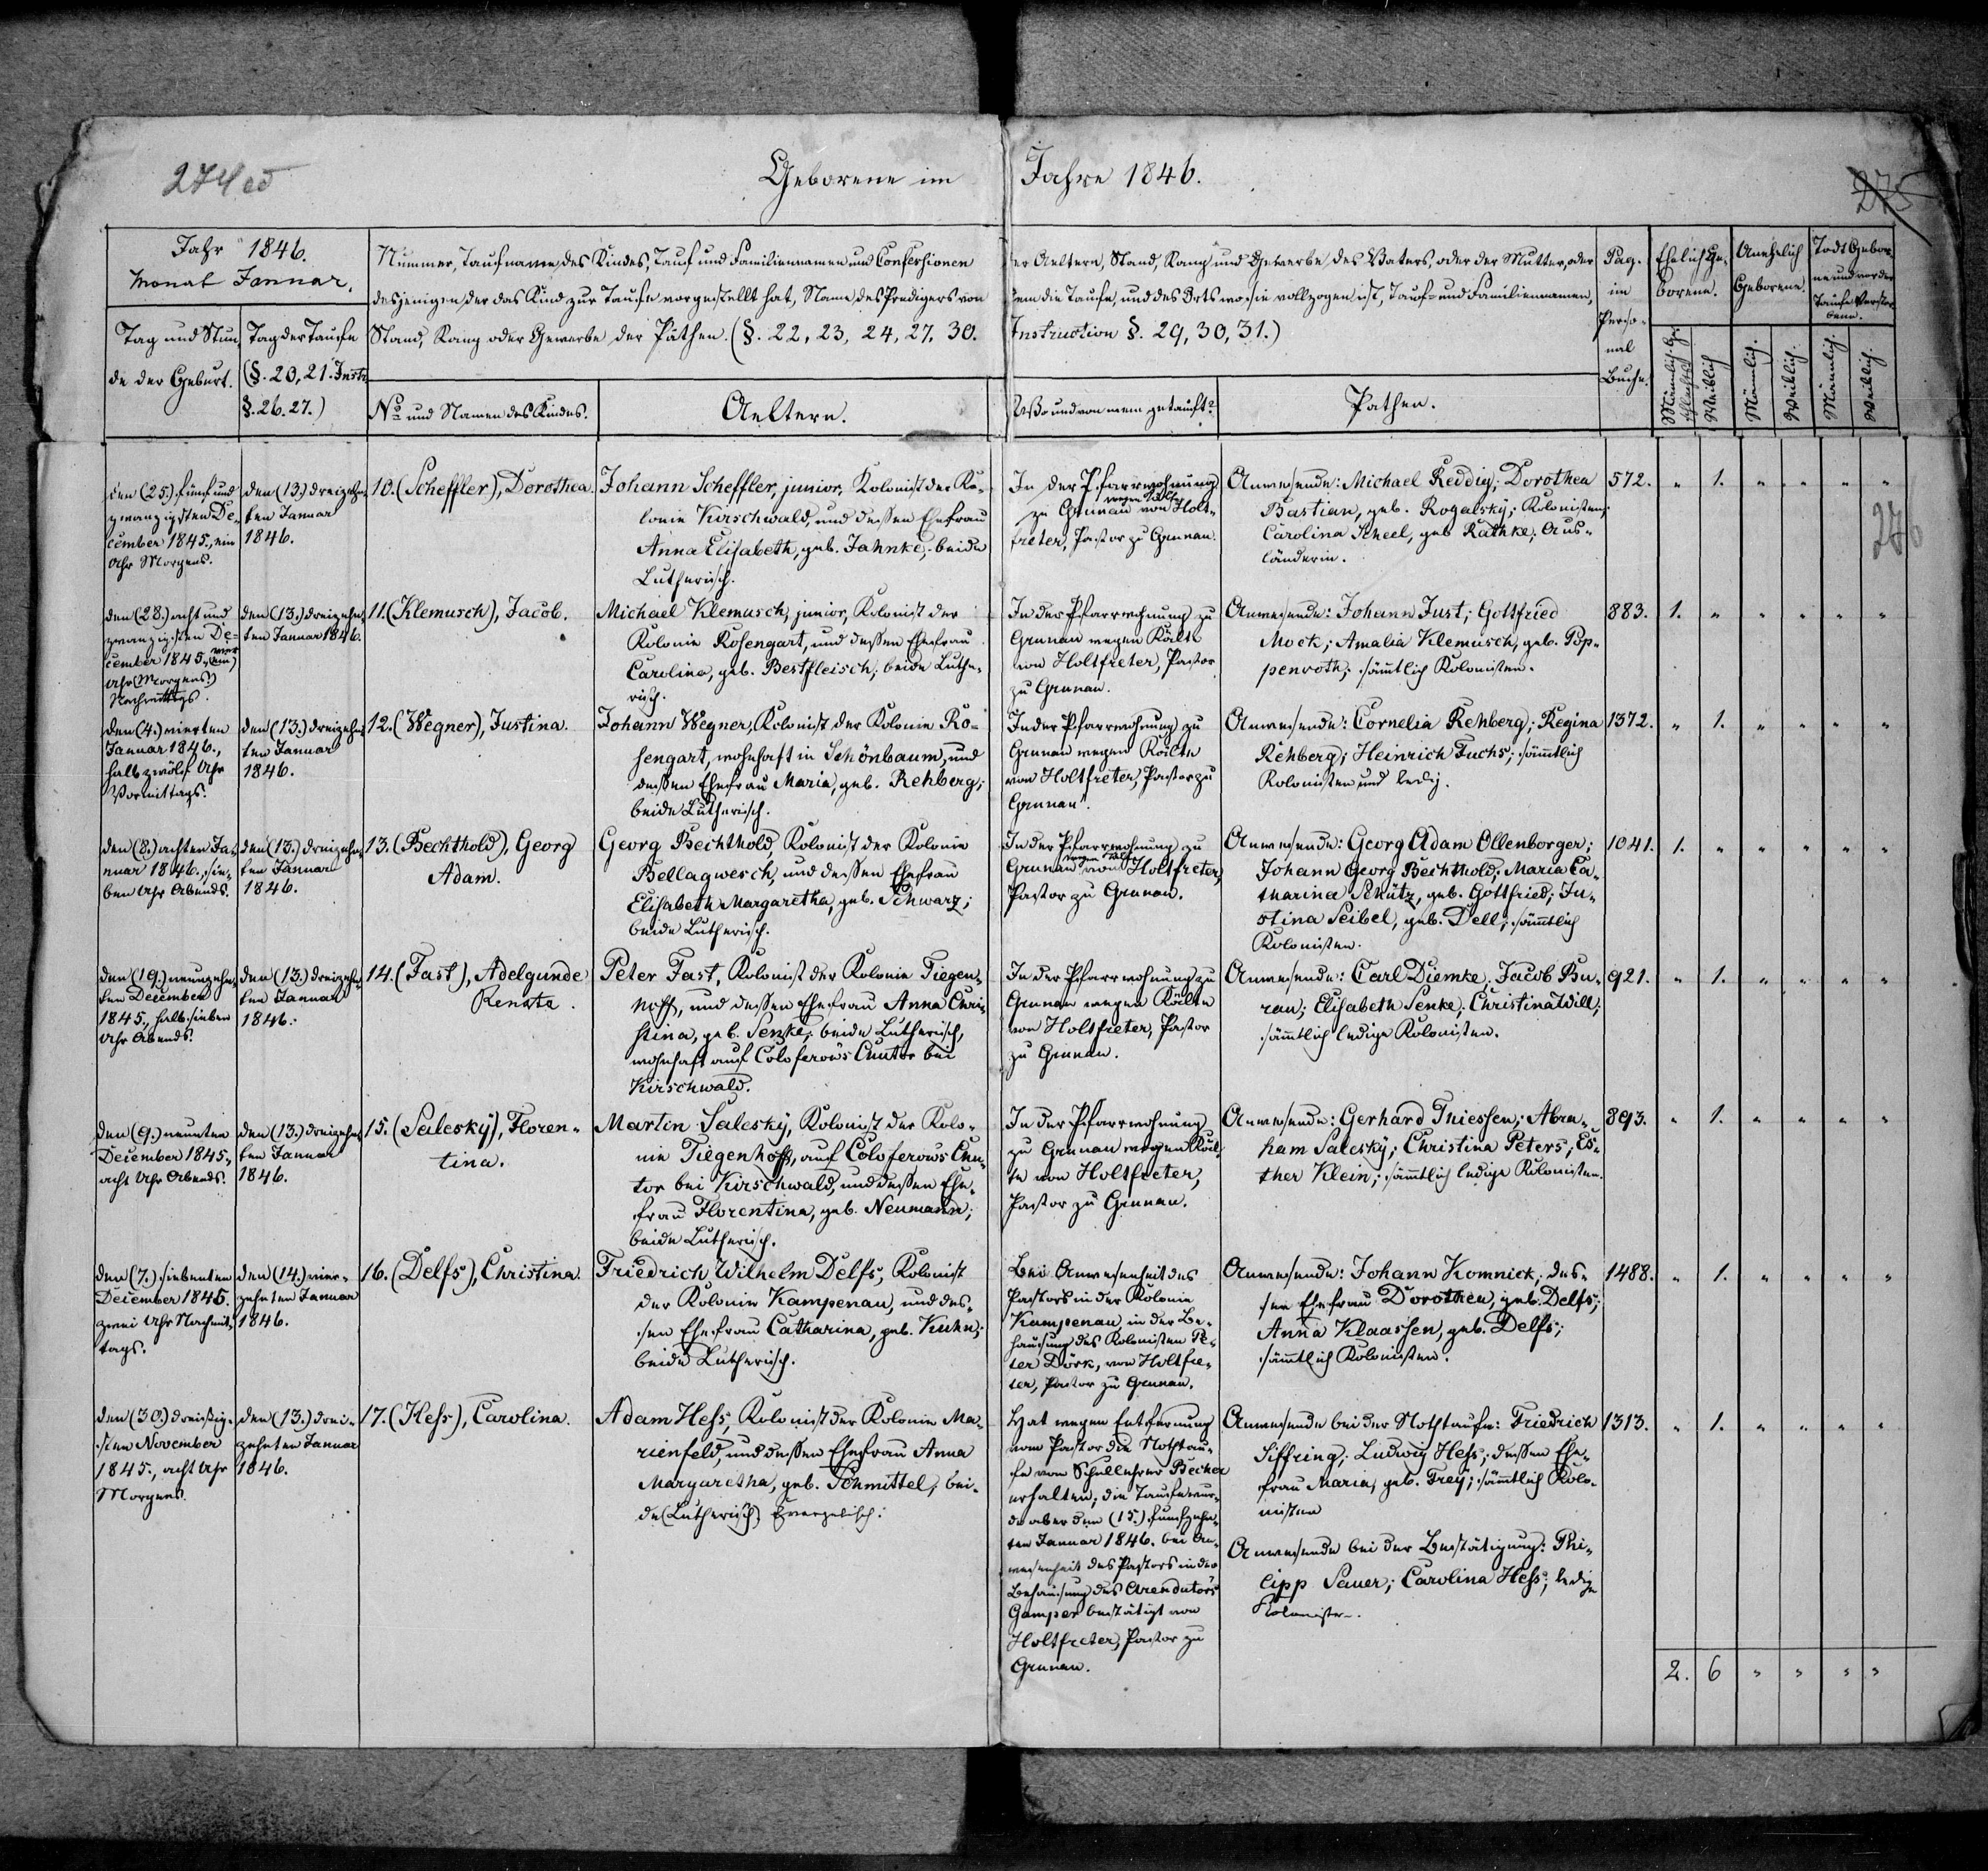 Geborene im Jahre 1846.
275
Jahr 1846.
Monat Januar.
Tag und Stun
de der Geburt.
Tag der Taufe
(§. 20, 21. Instr.
§. 26. 27.)
Nummer, Taufname des Kindes, Tauf und Familiennamen und Confessionen
desjenigen der das Kind zur Taufe vorgestellt hat, Name des Predigers von
Stand, Rang oder Gewerbe der Pathen. (§. 22, 23, 24, 27, 30.
No und Namen des Kindes.
Aeltern.
der Aeltern, Stand, Rang und Gewerbe des Vaters, oder der Mutter, oder
dem die Taufe, und des Orts wo sie vollzogen ist, Tauf- und Familiennamen,
Instruction §. 29, 30, 31.)
Wo und von wem getauft?
Pathen.
Pag.
im
Perso-
nal
Buche.
Ehelich Ge-
borene.
Unehelich
Geborene.
Todt Gebor-
ne und vor der
Taufe Verstor-
bene.
Männlich. Ge-
schlechts
Weiblich
Männlich.
Weiblich.
Männlich.
Weiblich.
den (25.) fünf und
zwanzigsten De-
cember 1845., ein
Uhr Morgens.
den (13.) dreizehn-
ten Januar
1846.
10. (Scheffler), Dorothea.
Johann Scheffler, junior, Kolonist der Ko-
lonie Kirschwald, und dessen Ehefrau
Anna Elisabeth, geb. Jahnke; beide
Lutherisch.
In der Pfarrwohnung
wegen Kälte
zu Grunau von Holt-
freter, Pastor zu Grunau.
Anwesende: Michael Reddig; Dorothea
Bastian, geb. Rogalsky; Kolonisten;
Carolina Scheel, geb Rathke; Aus-
länderin.
572. " 1. " " " "
276
den (28.) acht und
zwanzigsten De-
cember 1845., (ein) vier
Uhr (Morgens.)
Nachmittags.
den (13.) dreizehn-
ten Januar 1846.
11. (Klemusch), Jacob.
Michael Klemusch, junior, Kolonist der
Kolonie Rosengart, und dessen Ehefrau
Carolina, geb. Bestfleisch; beide Luthe-
risch.
In der Pfarrwohnung zu
Grunau wegen Kälte
von Holtfreter, Pastor
zu Grunau.
Anwesende: Johann Just; Gottfried
Mock; Amalia Klemusch, geb. Pop-
penroth; sämtlich Kolonisten.
883. 1. " " " " "
den (4.) vierten
Januar 1846.,
halb zwölf Uhr
Vormittags.
den (13.) dreizehn-
ten Januar
1846.
12. (Wegner), Justina.
Johann Wegner, Kolonist der Kolonie Ro-
sengart, wohnhaft in Schönbaum, und
dessen Ehefrau Maria, geb. Rehberg;
beide Lutherisch.
In der Pfarrwohnung zu
Grunau wegen Kälte
von Holtfreter, Pastor zu
Grunau.
Anwesende: Cornelia Rehberg; Regina
Rehberg; Heinrich Fuchs; sämtlich
Kolonisten und ledig.
1372. " 1. " " " "
den (8.) achten Ja-
nuar 1846., sie-
ben Uhr Abends.
den (13.) dreizehn-
ten Januar
1846.
13. (Bechthold), Georg
Adam.
Georg Bechthold, Kolonist der Kolonie
Bellagwesch, und dessen Ehefrau
Elisabeth Margaretha, geb. Schwarz;
beide Lutherisch.
In der Pfarrwohnung zu
wegen Kälte
Grunau von Holtfreter,
Pastor zu Grunau.
Anwesende: Georg Adam Ollenborger;
Johann Georg Bechthold; Maria Ca-
tharina Schütz, geb. Gottfried; Ju-
stina Seibel, geb. Dell; sämtlich
Kolonisten.
1041. 1. " " " " "
den (19.) neunzehn-
ten December
1845., halb sieben
Uhr Abends.
den (13.) dreizehn-
ten Januar
1846.
14. (Fast), Adelgunde
Renata.
Peter Fast, Kolonist der Kolonie Tiegen-
hoff, und dessen Ehefrau Anna Chri-
stina, geb. Senke; beide Lutherisch,
wohnhaft auf Coloferow's Chutor bei
Kirschwald.
In der Pfarrwohnung zu
Grunau wegen Kälte
von Holtfreter, Pastor
zu Grunau.
Anwesende: Carl Diemke; Jacob Bu-
rau; Elisabeth Senke; Christina Will;
sämtlich ledige Kolonisten.
921. " 1. " " " "
den (9.) neunten
December 1845.,
acht Uhr Abends.
den (13.) dreizehn-
ten Januar
1846.
15. (Salesky), Floren-
tina.
Martin Salesky, Kolonist der Kolo-
nie Tiegenhoff, auf Coloferow's Chu-
tor bei Kirschwald, und dessen Ehe-
frau Florentina, geb. Neumann;
beide Lutherisch.
In der Pfarrwohnung
zu Grunau wegen Käl-
te von Holtfreter,
Pastor zu Grunau.
Anwesende: Gerhard Thiessen; Abra-
ham Salesky; Christina Peters; Es-
ther Klein; sämtlich ledige Kolonisten.
893. " 1. " " " "
den (7.) siebenten
December 1845.
zwei Uhr Nachmit-
tags.
den (14.) vier-
zehnten Januar
1846.
16. (Delfs), Christina.
Friedrich Wilhelm Delfs, Kolonist
der Kolonie Kampenau, und des-
sen Ehefrau Catharina, geb. Kuhn;
beide Lutherisch.
Bei Anwesenheit des
Pastors in der Kolonie
Kampenau in der Be-
hausung des Kolonisten Pe-
ter Dörk, von Holtfre-
ter, Pastor zu Grunau.
Anwesende: Johann Komnick; des-
sen Ehefrau Dorothea, geb. Delfs;
Anna Klaassen, geb. Delfs;
sämtlich Kolonisten.
1488. " 1. " " " "
den (30.) dreißig-
sten November
1845., acht Uhr
Morgens.
den (13.) drei-
zehnten Januar
1846.
17. (Hess), Carolina.
Adam Hess, Kolonist der Kolonie Ma-
rienfeld, und dessen Ehefrau Anna
Margaretha, geb. Schmittel; bei-
de (Lutherisch) Evangelisch.
Hat wegen Entfernung
vom Pastor die Nothtau-
fe von Schullehrer Becker
erhalten; die Taufe wur-
de aber den (15.) funfzehn-
ten Januar 1846. bei An-
wesenheit des Pastors in der
Behausung des Arendators
Gamper bestätigt von
Holtfreter, Pastor zu
Grunau.
Anwesende bei der Nothtaufe: Friedrich
Siffring; Ludwig Hess; dessen Ehe-
frau Maria, geb. Frey; sämtlich Kolo-
nisten
Anwesende bei der Bestätigung: Phi-
lipp Sauer; Carolina Hess; ledige
Kolonisten.
1313. " 1. " " " "
2. 6 " " " "